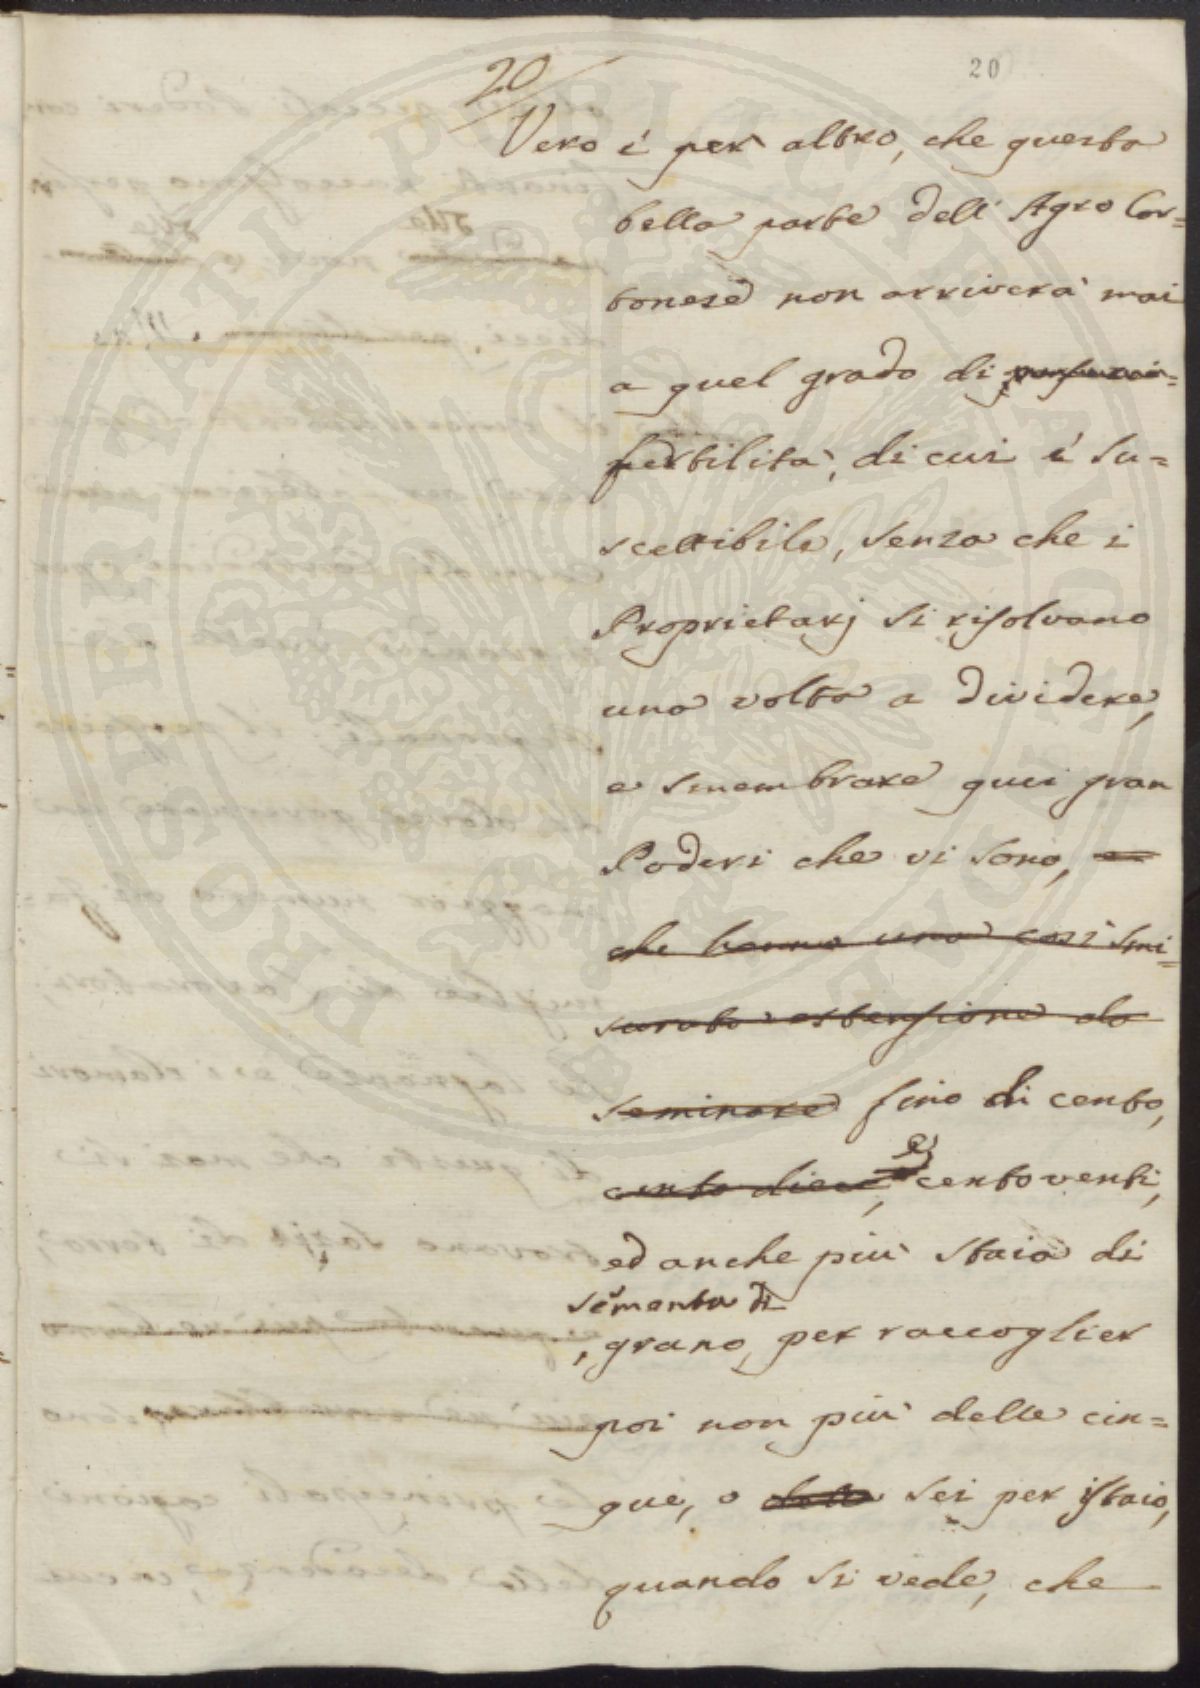 20
20
Vero è per altro, che questa
bella parte dell' Agro Cor=
tonese non arriverà mai
a quel grado di
fertilità, di cui è su=
scettibile, senza che i
Proprietarj si risolvano
una volta a dividere,
e smembrare quei gran
Poderi che vi sono, e
che hanno una così smi=
surata estensione da
seminare fino di cento,
cento dieci, e centoventi,
ed anche più staia di
sementa di
, grano, per raccoglier
poi non più delle cin=
que, o delle sei per istaio,
quando si vede, che
PROSPERITATI PUBLICAE AUGENDAE